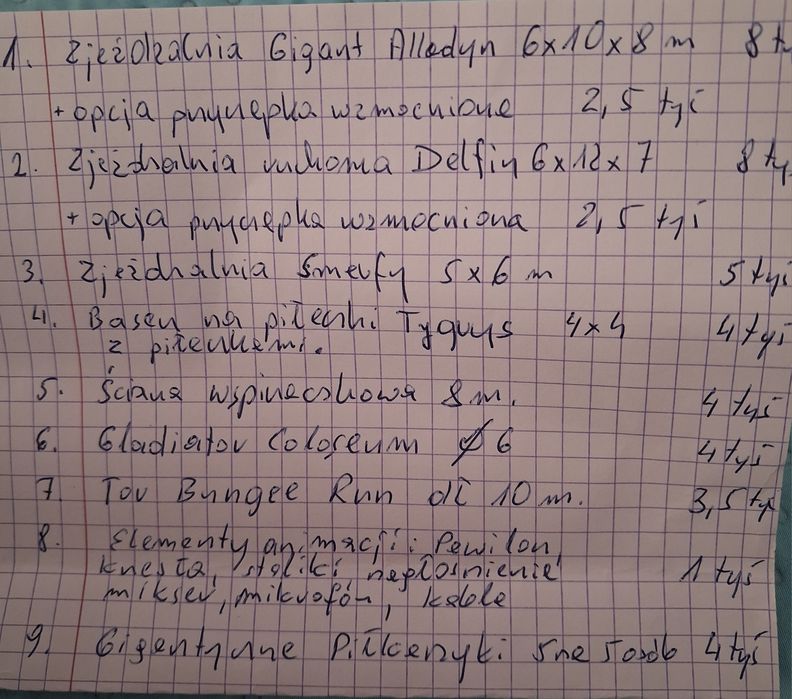 1. Zjeżdżalnia Gigant Alladyn 6x10x8 m 8 t
+ opcja przyczepka wzmocniona 2,5 tyś
2. Zjeżdżalnia ruchoma Delfin 6x12x7 8 ty
+ opcja przyczepka wzmocniona 2,5 tyś
3. Zjeżdżalnia Smerfy 5x6 m 5 tyś
4. Basen na piłeczki Tygrys 4x4 4 tyś
z piłeczkami.
5. Ściana wspinaczkowa 8 m. 4 tyś
6. Gladiator Coloseum ø 6 4 tyś
7. Tor Bungee Run dł 10 m. 3,5 tyś
8. Elementy animacji: Pawilon
krzesła, stoliki nagłośnienie 1 tyś
mikser, mikrofon, kable
9. Gigantyczne Piłkarzyki 5 na 5 osób 4 tyś